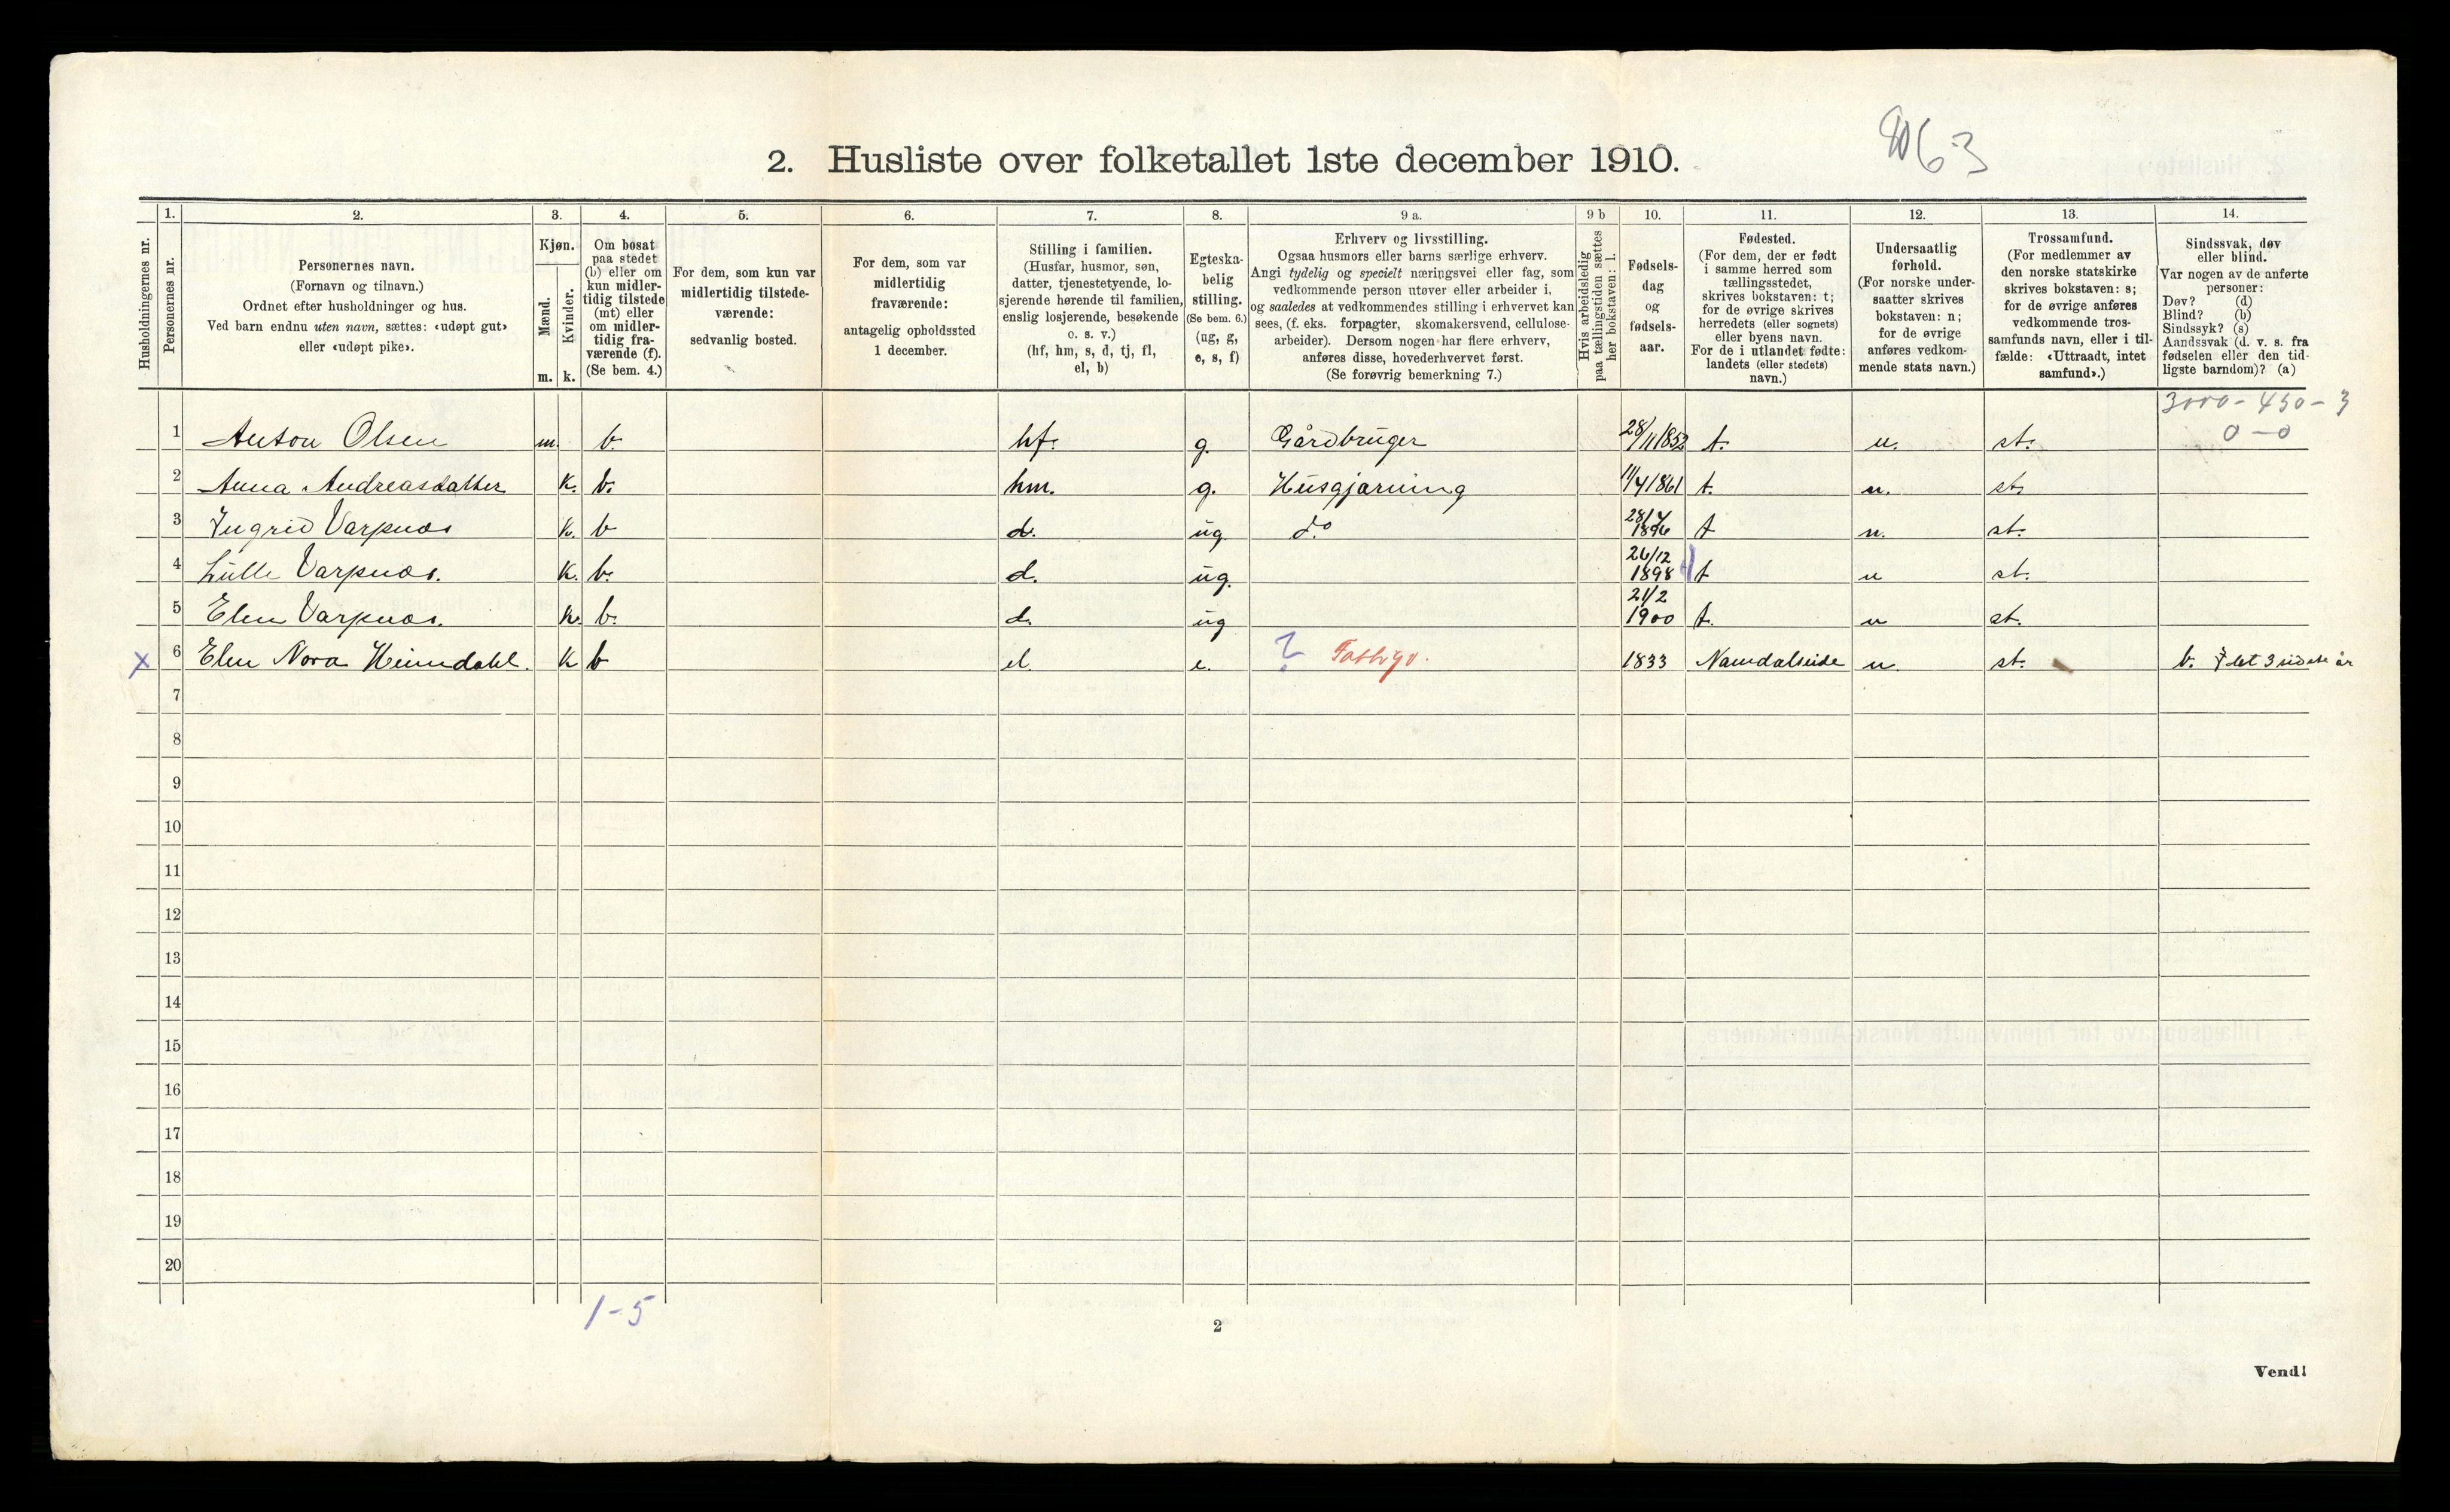 863
2. Husliste over folketallet 1ste december 1910.
Husholdningernes nr.
1. Personernes nr.
2. Personernes navn. (Fornavn og tilnavn.) Ordnet efter husholdninger og hus. Ved barn endnu uten navn, sættes: «udøpt gut» eller «udøpt pike».
3. Kjøn. Mænd. m. Kvinder. k.
4. Om bosat paa stedet (b) eller om kun midlertidig tilstede (mt) eller om midlertidig fraværende (f). (Se bem. 4.)
5. For dem, som kun var midlertidig tilstedeværende: sedvanlig bosted.
6. For dem, som var midlertidig fraværende: antagelig opholdssted 1 december.
7. Stilling i familien. (Husfar, husmor, søn, datter, tjenestetyende, losjerende hørende til familien, enslig losjerende, besøkende o. s. v.) (hf, hm, s, d, tj, fl, el, b)
8. Egteskabelig stilling. (Se bem. 6.) (ug, g, e, s, f)
9 a. Erhverv og livsstilling. Ogsaa husmors eller barns særlige erhverv. Angi tydelig og specielt næringsvei eller fag, som vedkommende person utøver eller arbeider i, og saaledes at vedkommendes stilling i erhvervet kan sees, (f. eks. forpagter, skomakersvend, cellulosearbeider). Dersom nogen har flere erhverv, anføres disse, hovederhvervet først. (Se forøvrig bemerkning 7.)
9 b Hvis arbeidsledig paa tællingstiden sættes her bokstaven: l.
10. Fødselsdag og fødselsaar.
11. Fødested. (For dem, der er født i samme herred som tællingsstedet, skrives bokstaven: t; for de øvrige skrives herredets (eller sognets) eller byens navn. For de i utlandet fødte: landets (eller stedets) navn.)
12. Undersaatlig forhold. (For norske undersaatter skrives bokstaven: n; for de øvrige anføres vedkommende stats navn.)
13. Trossamfund. (For medlemmer av den norske statskirke skrives bokstaven: s; for de øvrige anføres vedkommende trossamfunds navn, eller i tilfælde: «Uttraadt, intet samfund».)
14. Sindssvak, døv eller blind. Var nogen av de anførte personer: Døv? (d) Blind? (b) Sindssyk? (s) Aandssvak (d. v. s. fra fødselen eller den tidligste barndom)? (a)
3000-450-3
0-0
1 Anton Olsen m. b. hf. g. Gårdbruger 28/11 1852 t. n. st.
2 Anna Andreasdatter K. b. hm. g. Husgjærning 11/4 1861 t. n. st.
3 Ingrid Varpnæs K. b d. ug. do 28/4 1896 t n. st.
4 Lulle Varpnæs. K. b. d. ug. 26/12 1898 t n st.
5 Elen Varpnæs. K. b. d. ug 21/2 1900 t. n st.
x 6 Elen Nora Heimdahl. K b el. e. ? Fattigu. 1833 Namdalseide n. st. b. I det 3 sidste år
7
8
9
10
11
12
13
14
15
16
17
18
19
20
1-5
2
Vend!